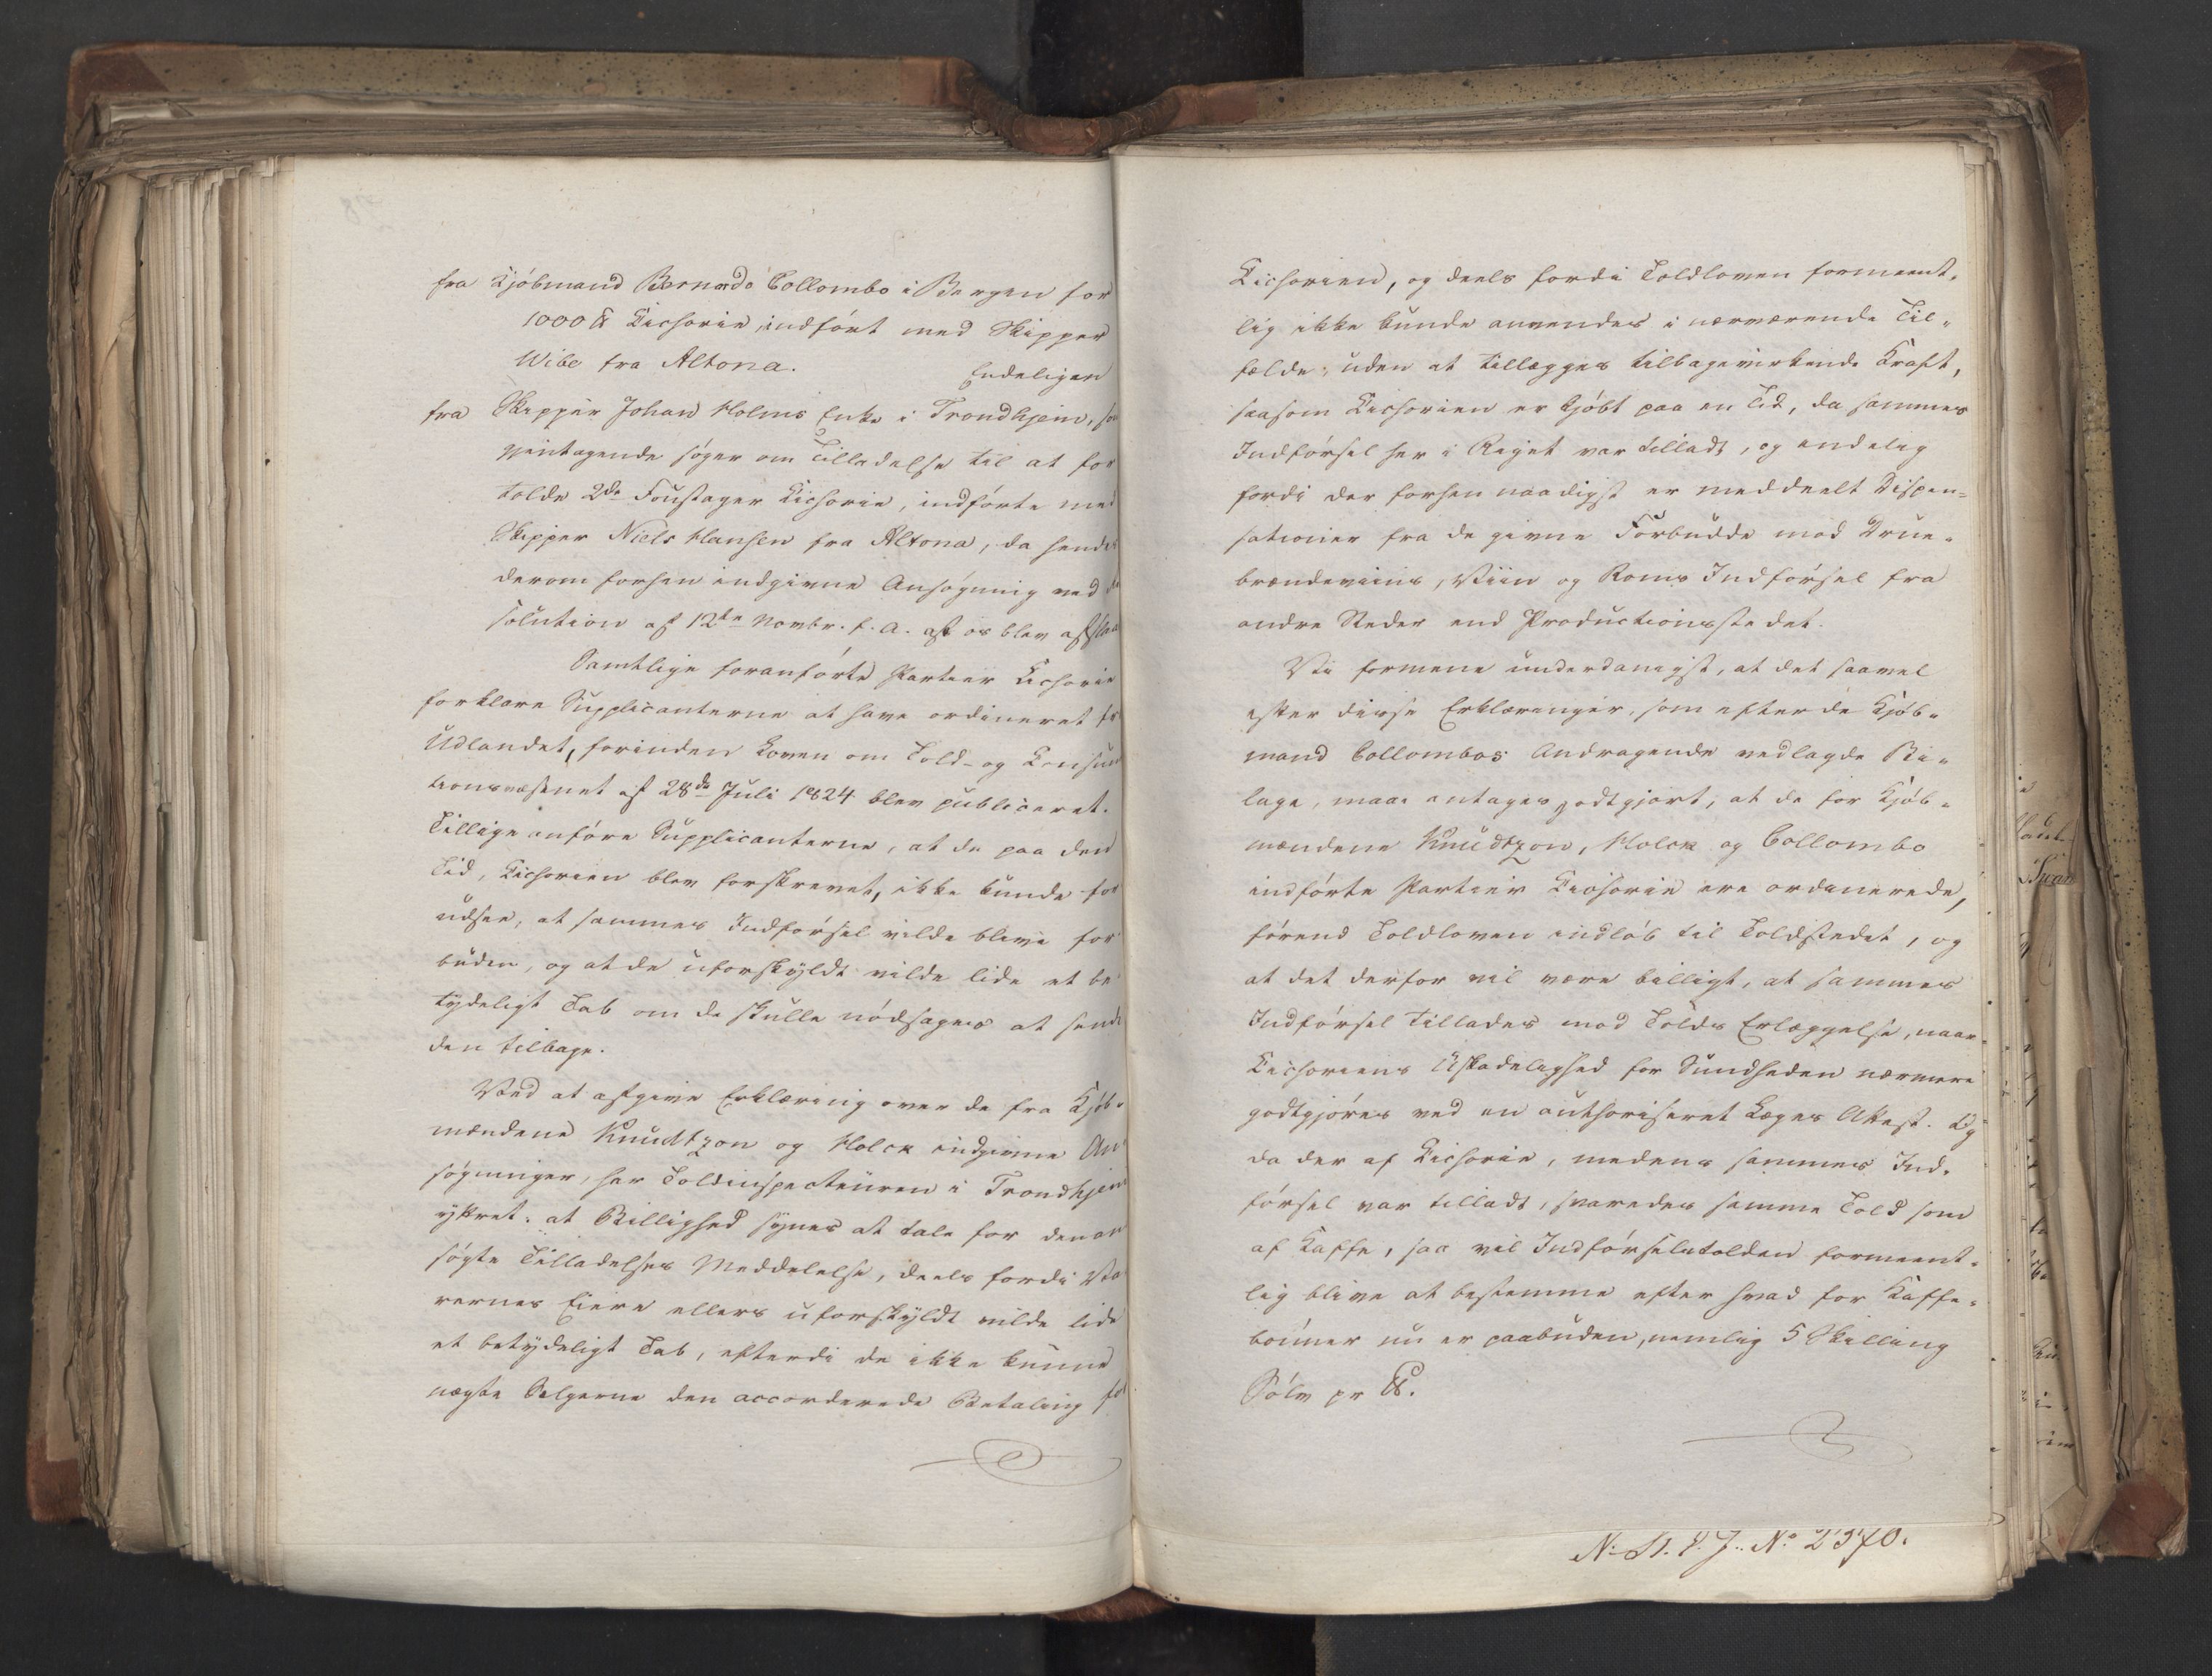 fra Kjöbmand Bernardo Collombo i Bergen for
1000 ℔ Cichorie, indført med Skipper
Wibe fra Altona.
Endeligen
fra Skipper Johan Holms Enke i Trondhjem, som
gjentagende søger om Tilladelse til at for
tolde 2de Foustager Cichorie, indførte med
Skipper Niels Hansen fra Altona, da hendes
derom forhen indgivne Ansøgning ved Re
solution af 12te Novbr. f. A. af os blev afslaa
Samtlige foranførte Partier Cichorie
forklare Supplicanterne at have ordineret fra
Udlandet, forinden Loven om Told- og Consum
tionsvæsenet af 28de Juli 1824 blev publiceret.
Tillige anføre Supplicanterne, at de paa den
Tid, Cichorien blev forskrevet, ikke kunde for
udsee, at sammes Indførsel vilde blive for
buden, og at de uforskyldt vilde lide et be
tydeligt Tab om de skulle nødsages at sende
den tilbage.
Ved at afgive Erklæring over de fra Kjöb-
mændene Knudtzon og Holck indgivne An
søgninger, har Toldinspecteuren i Trondhjem
yttret: at Billighed synes at tale for den an
søgte Tilladelses Meddelelse, deels fordi Va
rernes Eiere ellers uforskyldt vilde lide
et betydeligt Tab, efterdi de ikke kunne
nægte Sælgerne den accorderede Betaling for
Cichorien, og deels fordi Toldloven formeent-
lig ikke kunde anvendes i nærværende Til-
fælde, uden at tillægges tilbagevirkende Kraft,
saasom Cichorien er kjöbt paa en Tid, da sammes
Indførsel her i Riget var tilladt, og endelig
fordi der forhen naadigst er meddeelt Dispen-
sationer fra de givne Forbudde mod Drue-
brændeviins, Viin og Roms Indførsel fra
andre Steder end Productionsstedet.
Vi formene underdanigst, at det saavel
efter disse Erklæringer, som efter de Kjöb-
mand Collombos Andragende vedlagde Bi-
lage, maae antages godtgjort, at de for Kjöb-
mændene Knudtzon, Holck og Collombo
indførte Partier Cichorie ere ordinerede,
førend Toldloven indløb til Toldstedet, og
at det derfor vil være billigt, at sammes
Indførsel tillades mod Tolds Erlæggelse, naar
Cichoriens Uskadelighed for Sundheden nærmere
godtgjøres ved en authoriseret Læges Attest. Og
da der af Cichorie, medens sammes Ind-
førsel var tilladt, svaredes samme Told som
af Kaffe, saa vil Indførselstolden formeent-
lig blive at bestemme efter hvad for Kaffe-
bønner nu er paabuden, nemlig 5 Skilling
Sølv pr ℔.
N: St. P. J. No 2370.